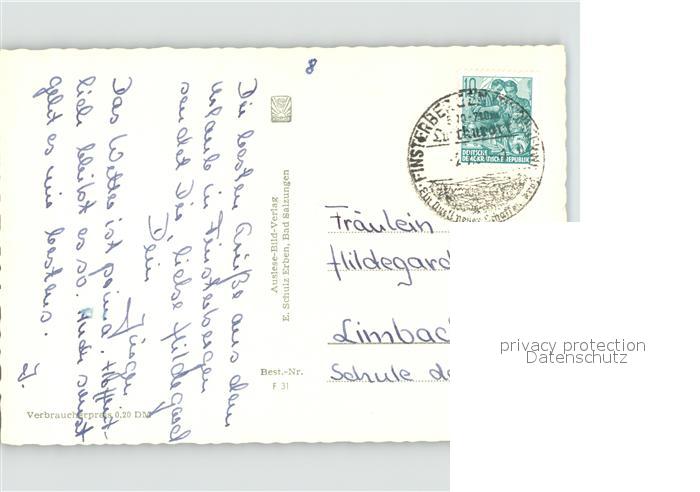 Die besten Grüße aus dem
Urlaub in Finsterbergen
sendet Dir, liebe Hildegard
Dein Jürgen
Das Wetter ist prima. Hoffent-
lich bleibt es so. Auch sonst
geht es mir bestens.
J.
8
Auslese-Bild-Verlag
E. Schulz Erben, Bad Salzungen
Best.-Nr.
F 31
Verbraucherpreis 0,20 DM
10
DEUTSCHE
DEMOKRATISCHE REPUBLIK
FINSTERBERGEN
Luftkurort
Fräulein
Hildegard
Limbac
Schule de
privacy protection
Datenschutz